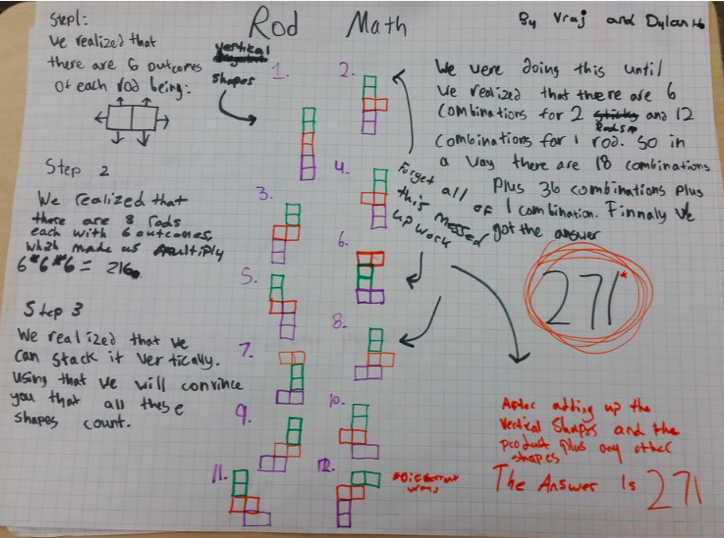 Rod Math
By Vraj and Dylan
Step1:
We realized that
there are 6 outcomes
Of each rod being:
vertical
shapes
Step 2
We realized that
there are 8 rods
each with 6 outcomes
which made us multiply
6*6*6= 216
Step 3
We realized that we
can stack it vertically.
Using that we will convince
you that all these
shapes count.
1.
2.
3.
4.
5.
6.
7.
8.
9.
10.
11.
12.
We were doing this until
we realized that there are 6
combinations for 2 rods and 12
combinations for 1 rod. So in
a way there are 18 combinations
plus 36 combinations plus
1 combination. Finnaly we
got the answer
Forget all
of
this messed
up work
271*
*Different
ways
After adding up the
vertical shapes and the
product plus any other
shapes
The Answer is 271